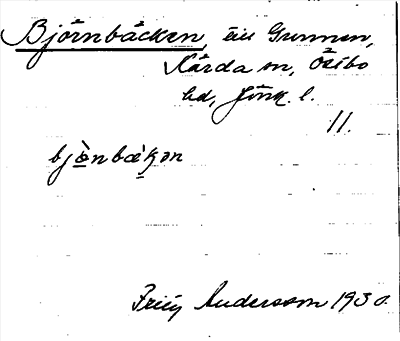 Björnbäcken, äli Grunnen,
Kärda sn, Östbo
hd, Jönk. l.
11.
bjö̀nbæ̀kən
Andersson 1930.